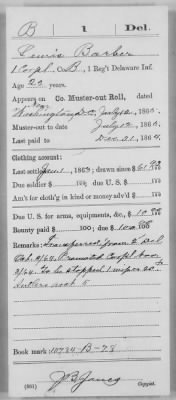 B 1 Del.
Lewis Barber
1 Corpl, Co. B, 1 Reg't Delaware Inf.
Age 22 years
Appears on Co. Muster-out Roll, dated
Washington D.C. July 12, 1865.
Muster-out to date July 12, 1865.
Last paid to Dec 31, 1864.
Clothing account:
Last settled 1, 1865; drawn since $
Due soldier $ 100; due U. S. $ 100
Am't for cloth'g in kind or money adv'd $ 100
Due U. S. for arms, equipments, &c., $
Bounty paid $ 100; due $ 100
Remarks: Transferred from 2 Del
Promoted Corpl
To be stopped 1 wiper 20
Book mark: 10784-B-78
(861) Copyist.